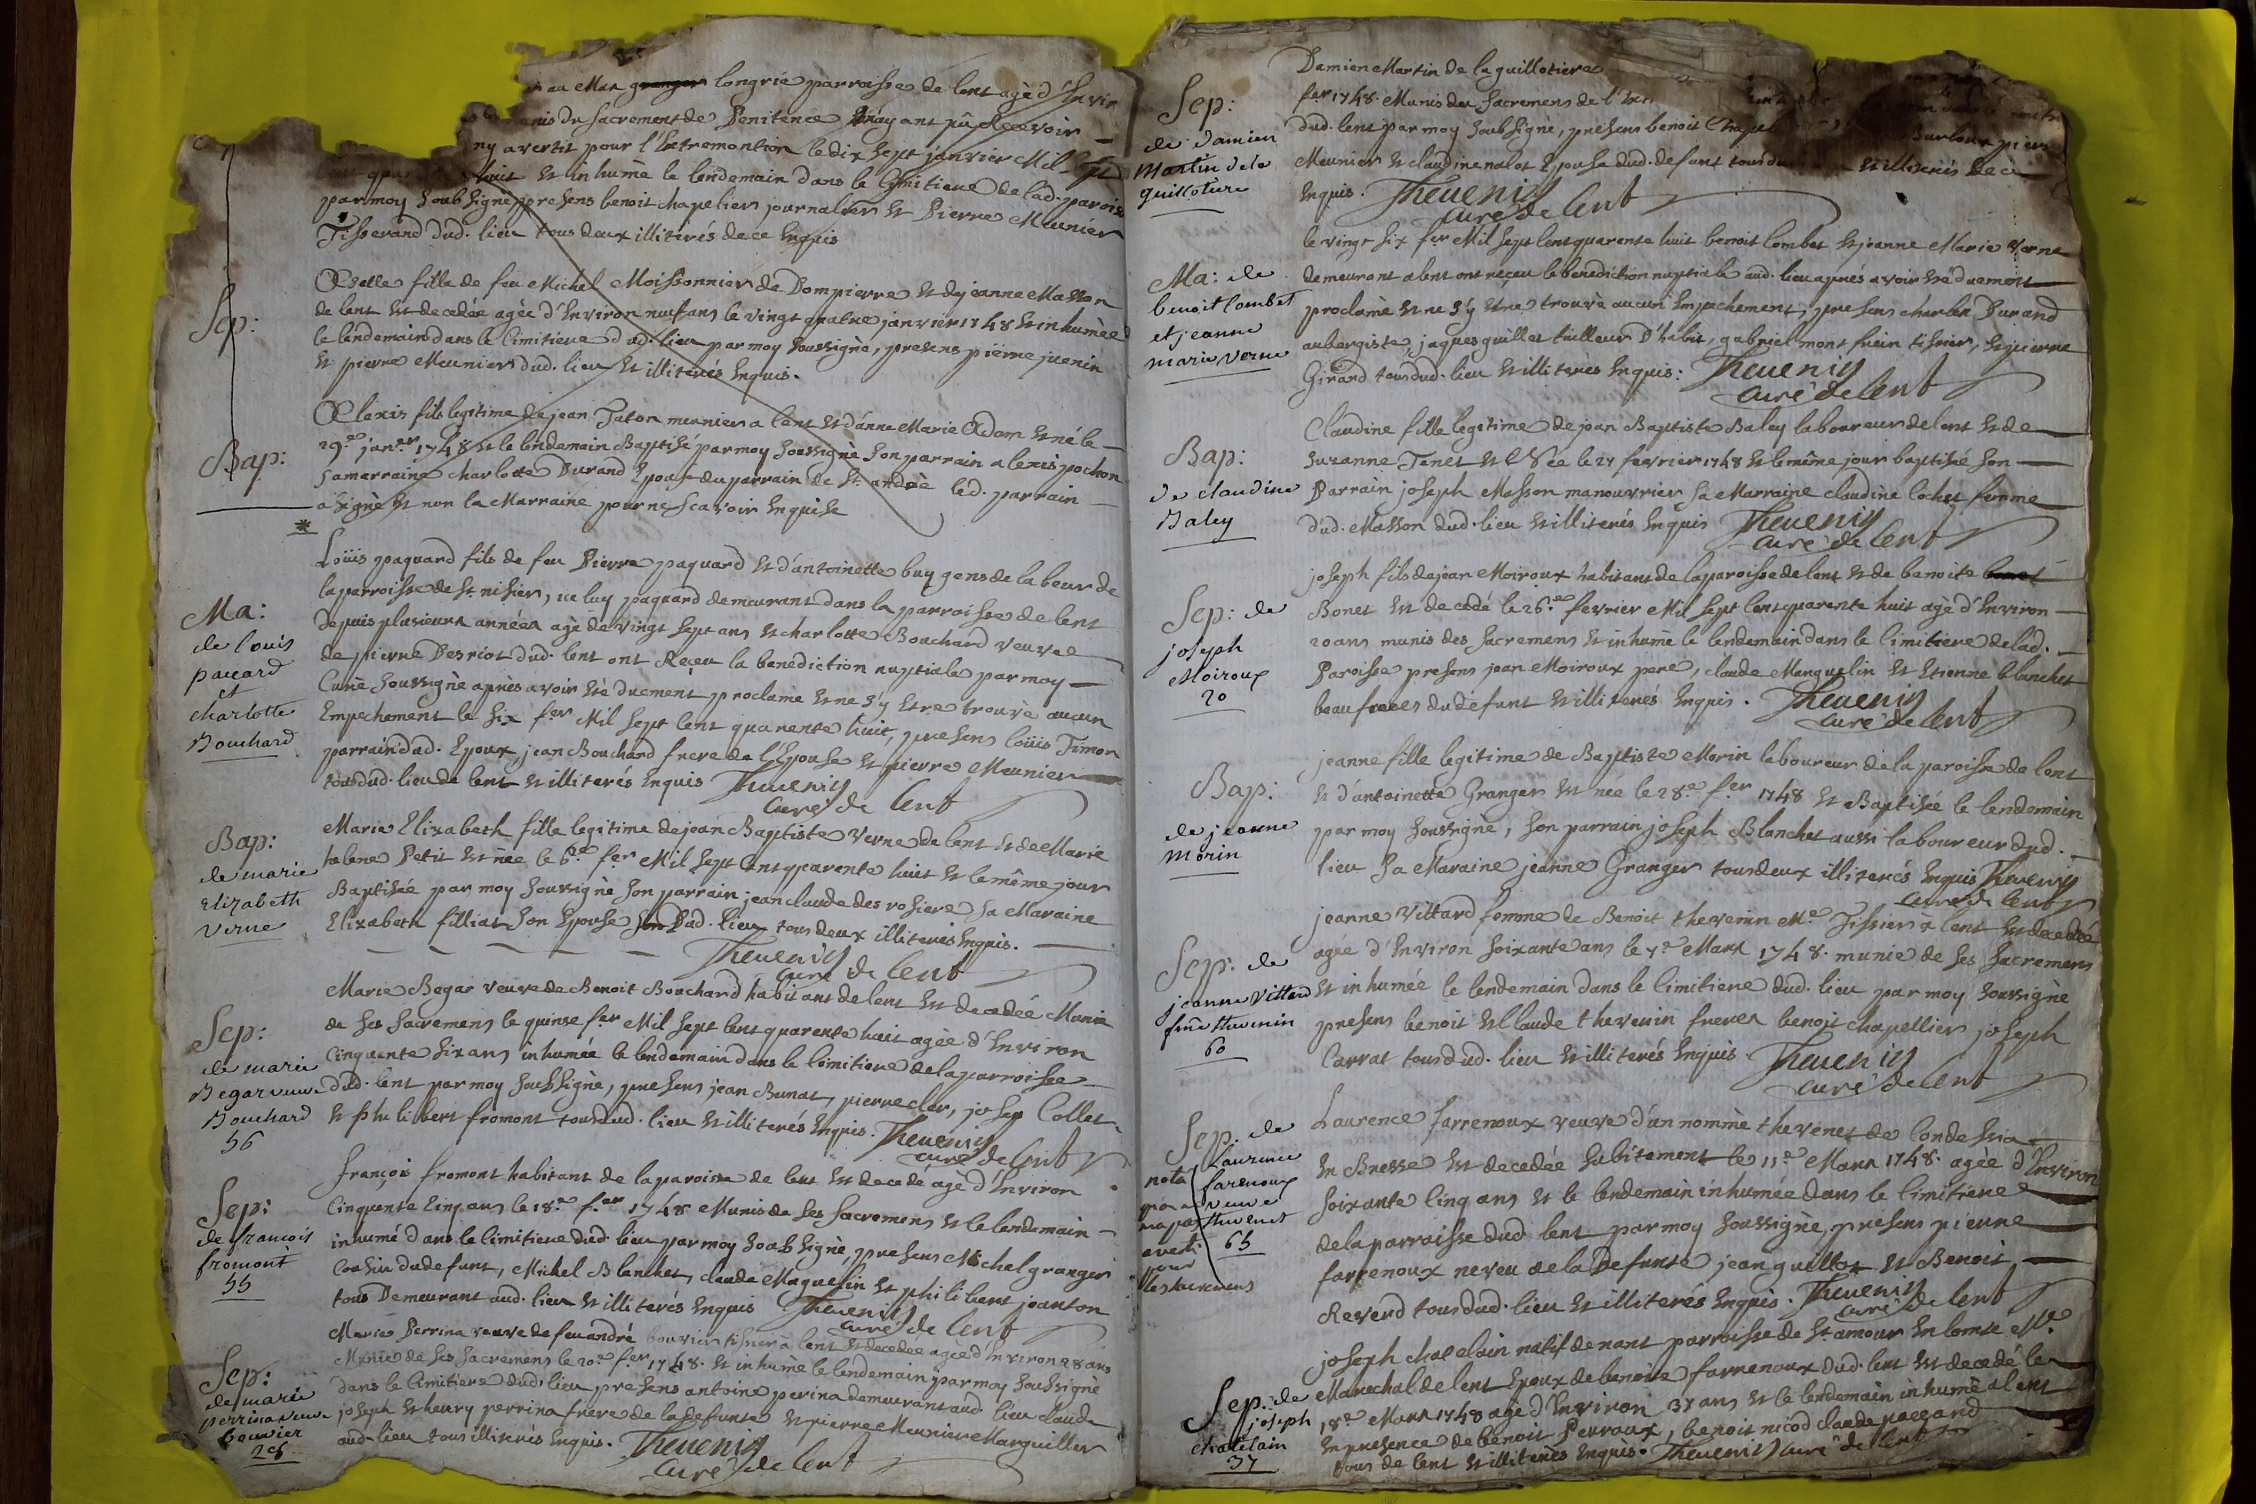 au Mas granger longrie parroisse de lent agè d'Envir
munis du Sacrement de Penitence n'ayant pû Recevoir
ny avertit pour l'Extremontion le dix sept janvier Mil sept
huit et inhumè le lendemain dans le Cimitiere de lad. parois
par moy soubsignè presens benoit chapelier journalier et Pierre Meunier
Tisserand dud. lieu tous deux illiterés de ce Enquis
Sep:
fille de feu Michel Moissonnier de Dompierre et de jeanne Masson
de lent est decedée agée d'Environ neuf ans le vingt quatre janvier 1748 et inhumèe
le lendemain dans le Cimitiere dud. lieu par moy soussignè, presens pierre juenin
et pierre Meunier dud. lieu et illiterés Enquis.
Bap:
Alexis fils legitime de jean Taton meunier a lent et d'anne Marie Adam est né le
29.e janer 1748 et le lendemain Baptisé par moy soussignè son parrain alexis pochon
sa marraine charlotte Durand Epouse du parrain de St. andrè led. parrain
a signè et non la Marraine pour ne scavoir Enquise
Ma:
de louis
pacard
et
charlotte
Bouchard
Loüis paquard fils de feu Pierre paquard et d'antoinette buy gens de labeur de
la parroisse de St. nisier, ce luy paquard demeurant dans la parroisse de lent
depuis plusieurs années agè de vingt sept ans et charlotte Bouchard veuve
de pierre Desriot dud. lent ont Reçeu la benediction nuptiale par moy
Curé soussignè après avoir été duement proclamé et ne s'y etre trouvè aucun
Empechement le six fer Mil sept cent quarente huit, presens loüis Timon
parrain dud. Epoux, jean Bouchard frere de l'Epouse et pierre Meunier
tous dud. lieu de lent et illiterés Enquis Thevenin
curé de lent
Bap:
de marie
Elizabeth
verne
Marie Elizabeth fille legitime de jean Baptiste Verne de lent et de Marie
helene Petit est née le 6.e fer Mil sept cent quarente huit et le même jour
Baptisée par moy soussignè son parrain jean claude des rosiere sa Maraine
Elizabeth filliat son Epouse dud. lieu tous deux illiterés Enquis.
Thevenin
curé de lent
Sep:
de marie
Begar veuve
Bouchard
56
Marie Begar veuve de Benoit Bouchard habitant de lent est decedée Munie
de ses sacremens le quinse fer Mil sept cent quarente huit agée d'Environ
Cinquente six ans inhumée le lendemain dans le Cimitiere de la parroisse
dud. lent par moy soubsignè, presens jean Bunat, pierre cler, josep Collet
et philibert fromont tous dud. lieu et illiterés Enquis. Thevenin
curé de lent
Sep:
de francois
fromont
55
françois fromont habitant de la paroisse de lent est decedé agè d'Environ
Cinquente Cinq ans le 18.e fer 1748 Munis de ses sacremens et le lendemain
inhumé dans le Cimitiere dud. lieu par moy soubsignè, presens Michel granger
Cousin du defunt, Michel Blanchet, claude Maguelin et philibert jeanton
tous Demeurant aud. lieu et illiterés Enquis Thevenin
curé de lent
Sep:
de marie
perrina veuve
bouvier
28
Marie Perrina veuve de feu andré bouvier tissier à lent est decedée agée d'Environ 28 ans
Munie de ses sacremens le 20.e fer 1748. et inhumée le lendemain par moy soussignè
dans le Cimitiere dud. lieu presens antoine perina demeurant aud. lieu claude
joseph et henry perrina frere de la defunte et pierre Meunier Marguillier
aud. lieu tous illiterés Enquis. Thevenin
curé de lent
Sep:
de Damien
Martin de la
guillotiere
Damien Martin de la guillotiere
fer 1748. Munis des Sacremens de l'
dud. lent par moy soubsignè, presens benoit Chapel
Meunier et claudine nalot Epouse dud. defunt tous et illiterés de ce
Enquis. Thevenin
curé de lent
Ma: de
benoit Combet
et jeanne
marie verne
le vingt six fer Mil sept cent quarente huit benoit Combet et jeanne Marie Verne
demeurant a lent ont reçeu la benediction nuptiale aud. lieu aprés avoir été duement
proclamè et ne s'y etre trouvé aucun Empechement, presens charles Durand
aubergiste, jaques guillet tailleur D'habit, gabriel mont frein tissier, et pierre
Girard tous dud. lieu et illiterés Enquis: Thevenin
curé de lent
Bap:
de claudine
Baley
Claudine fille legitime de jean Baptiste Baley laboureur de lent et de
Suzanne Tenet est née le 27 fevrier 1748 et le même jour baptisée son
Parrain joseph Masson manouvrier sa Marraine claudine cochet femme
dud. Masson dud. lieu et illiterés Enquis Thevenin
curé de lent
Sep: de
joseph
Moiroux
20
joseph fils de jean Moiroux habitant de la paroisse de lent et de benoite bonet
Bonet est decedé le 26.e fevrier Mil sept cent quarente huit agè d'Environ
20 ans munis des sacremens et inhumè le lendemain dans le Cimitiere de lad.
Paroisse presens jean Moiroux pere, claude Manguelin et Etienne blanchet
beaufreres du défunt et illiterés Enquis. Thevenin
curé de lent
Bap:
de jeanne
morin
jeanne fille legitime de Baptiste Morin laboureur de la paroisse de lent
et d'antoinette Granger est née le 28.e fer 1748 et Baptisée le lendemain
par moy soussignè, son parrain joseph Blanchet aussi laboureur dud.
lieu sa Maraine jeanne Granger tous deux illiterés Enquis Thevenin
curé de lent
Sep: de
jeanne vittard
fme thevenin
60
jeanne Vittard femme de Benoit thevenin Me. Tissier à lent est decedée
agée d'Environ soixante ans le 7.e Mars 1748. munie de ses sacremens
et inhumée le lendemain dans le Cimitiere dud. lieu par moy soussignè
presens benoit et Claude thevenin freres benoit chapellier joseph
Carrat tous dud. lieu et illiterés Enquis. Thevenin
curé de lent
Sep: de
Laurence
farenoux
veuve
thevenet
65
nota
qu'on
n'a pas
averti
pour
les sacremens
Laurence farrenoux veuve d'un nommé thevenet de Condessia
En Bresse est decedée subitement le 11.e Mars 1748. agée d'Environ
soixante Cinq ans et le lendemain inhumée dans le Cimitiere
de la parroisse dud. lent par moy soussignè, presens pierre
farrenoux neveu de la Defunte jean guillot et Benoit
Reverd tous dud. lieu et illiterés Enquis. Thevenin
curé de lent
Sep: de
joseph
chatelain
37
joseph chatelain natif de nant parroisse de St. amour En Comté Me.
Marechal de lent Epoux de benoite farrenoux dud. lent est decedé le
18.e Mars 1748 agè d'Environ 37 ans et le lendemain inhumè a lent
En presence de benoit Perroux, benoit nicod claude paccard
tous de lent et illiterés Enquis. Thevenin curé de lent